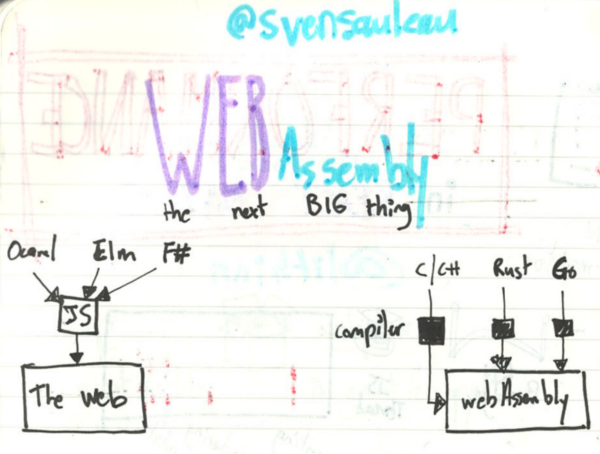 @svensauleau
WEB Assembly
the next BIG thing
Ocaml Elm F#
JS
The web
C/C++ Rust Go
compiler
webAssembly